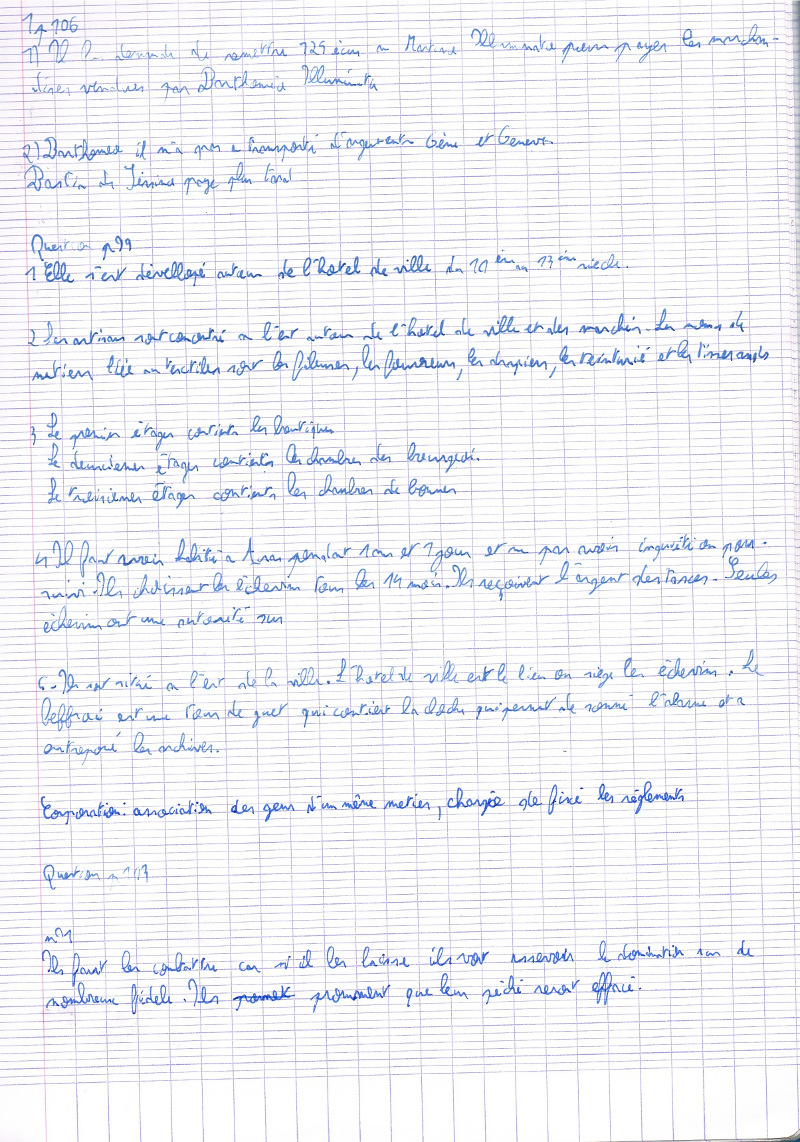 1 p 106
1) Il l demande de remettre 125 écus a Martine Illuminatie pour payer les marchan-
dises vendues par Barthomeo Illuminatie
2) Barthomeo il n'a pas a transporté d'argent entre Gène et Genève.
page plus tard
Question p 99
1 Elle s'est dévellopé autour de l'hotel de ville du 11 èm au 13 èm siècle.
2 Les artisan sont concentré a l'est autour de l'hotel de ville et des marchés. Les noms de
metiers liée au textiles sont les fileuses, les foureurs, les drapiers, les teinturié et les tisserands
3 Le premier étages contients les boutiques
Le deuxiemes étages contients les chambres des bourgeois.
Le troisiemes étages contients les chambres de bonnes
4. Il faut avoir habité a Arras pendant 1 an et 1 jour et ne pas avoir inquiété ou pour-
suivi. Ils choisissent les échevins tous les 14 mois. Ils reçoivent l'argent des taxes. Seules
échevins ont une autorité sur
5. Ils sont situé a l'est de la ville. L'hotel de ville est le lieu ou siège les échevins. Le
beffroi est une tour de guet qui contient la cloche qui permet de sonné l'alarme et a
entreposé les archives.
Corporation: association des gens d'un même metier, chargée de fixé les règlements
Question p 103
n°1
Ils faut les combattre car s'il les laisse ils vont assevoir le domination sur de
nombreux fidèle. Ils promet promment que leurs péché seront effacé.